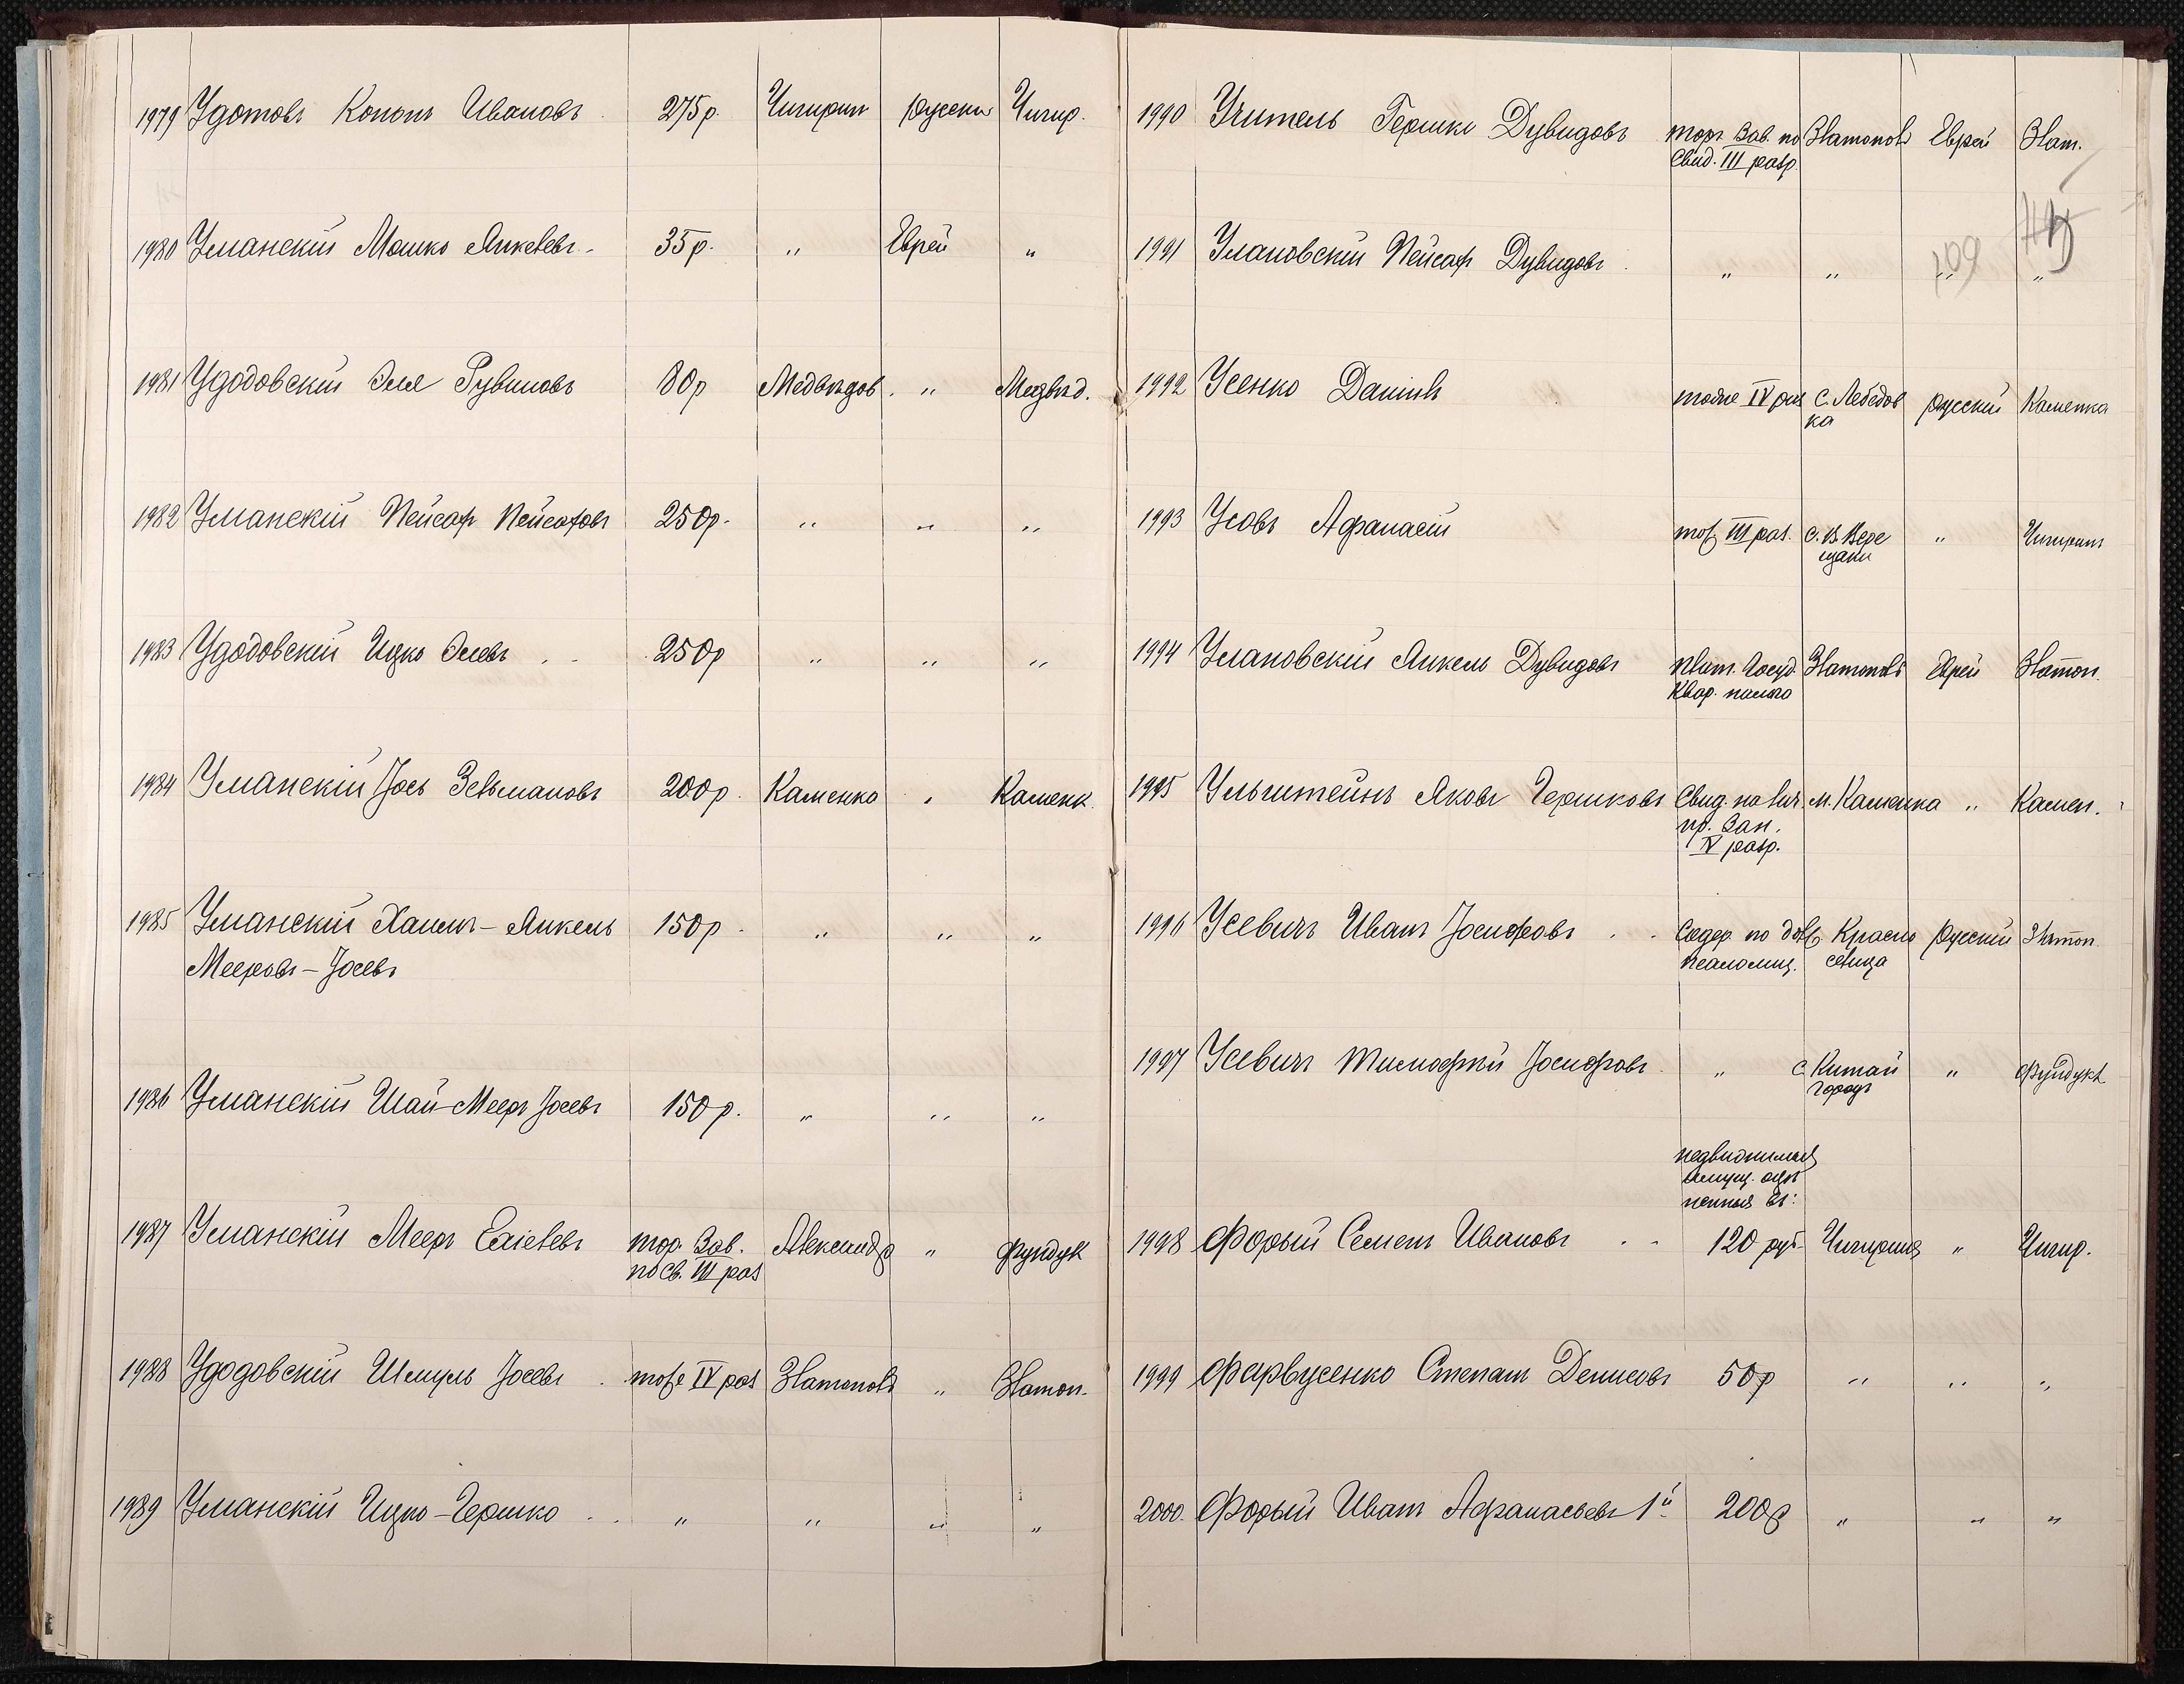 1979 Удотовъ Кононъ Ивановъ 275 р. Чигирин русски Чигир.
1980 Уманскій Мошко Янкелевъ - 35 р. " Еврей "
1981 Удодовскій Эля Рувиновъ 80 р Медвѣдов. " Медвѣд.
1982 Уманскій Пейсах Пейсахов 250 р. " " "
1983 Удодовскій Ицко Элевъ . . 250 р " " "
1984 Уманскій Іось Зельмановъ 200 р. Каменка " Каменк.
1985 Уманскій Хаимъ - Янкель 150 р. " " "
Мееровъ - Іосевъ
1986 Уманскій Шай - Мееръ Іосевъ 150 р. " " "
1987 Уманскій Мееръ Еліевевъ тор. Зав. Александр " фундук
по св. III раз
1988 Удодовскій Шмуль Іосевъ . тоже IV раз Златополь " Златоп.
1989 Уманскій Ицко - Гершко . . " " " "
1990 Учитель Гершко Дувидовъ торг. Зав. по Златополь Еврей Злат.
Свид. III разр.
109
1991 Улановскій Пейсах Дувидовъ . " " " "
1992 Усенко Даніилъ тоже IV раз с. Лебедов русскій Каменка
ка
1993 Усовъ Афанасій тож III раз. с. В. Вере " Чигиринъ
щаки
1994 Улановскій Янкель Дувидовъ плат. Госуд. Златополь Еврей Златоп.
Квар. налога
1995 Ульштейнъ Яковъ Гершковъ Свид. на лич. м. Каменка " Камен.
пр. Зан.
IV разр.
1996 Усевичъ Иванъ Іосифовъ . . с. Красно русскій Златоп.
псаломщ. селица
1997 Усевичъ Тимофей Іосифовъ . " с. Китай " Фундукл
городъ
недвижимыя
имущ. оцѣ
ненныя въ:
1998 Форый Семенъ Ивановъ . . 120 руб. Чигирин " Чигир.
1999 Фарвусенко Степанъ Денисовъ 50 р " " "
2000. Форый Иванъ Афанасьевъ 1й 200 р " " "